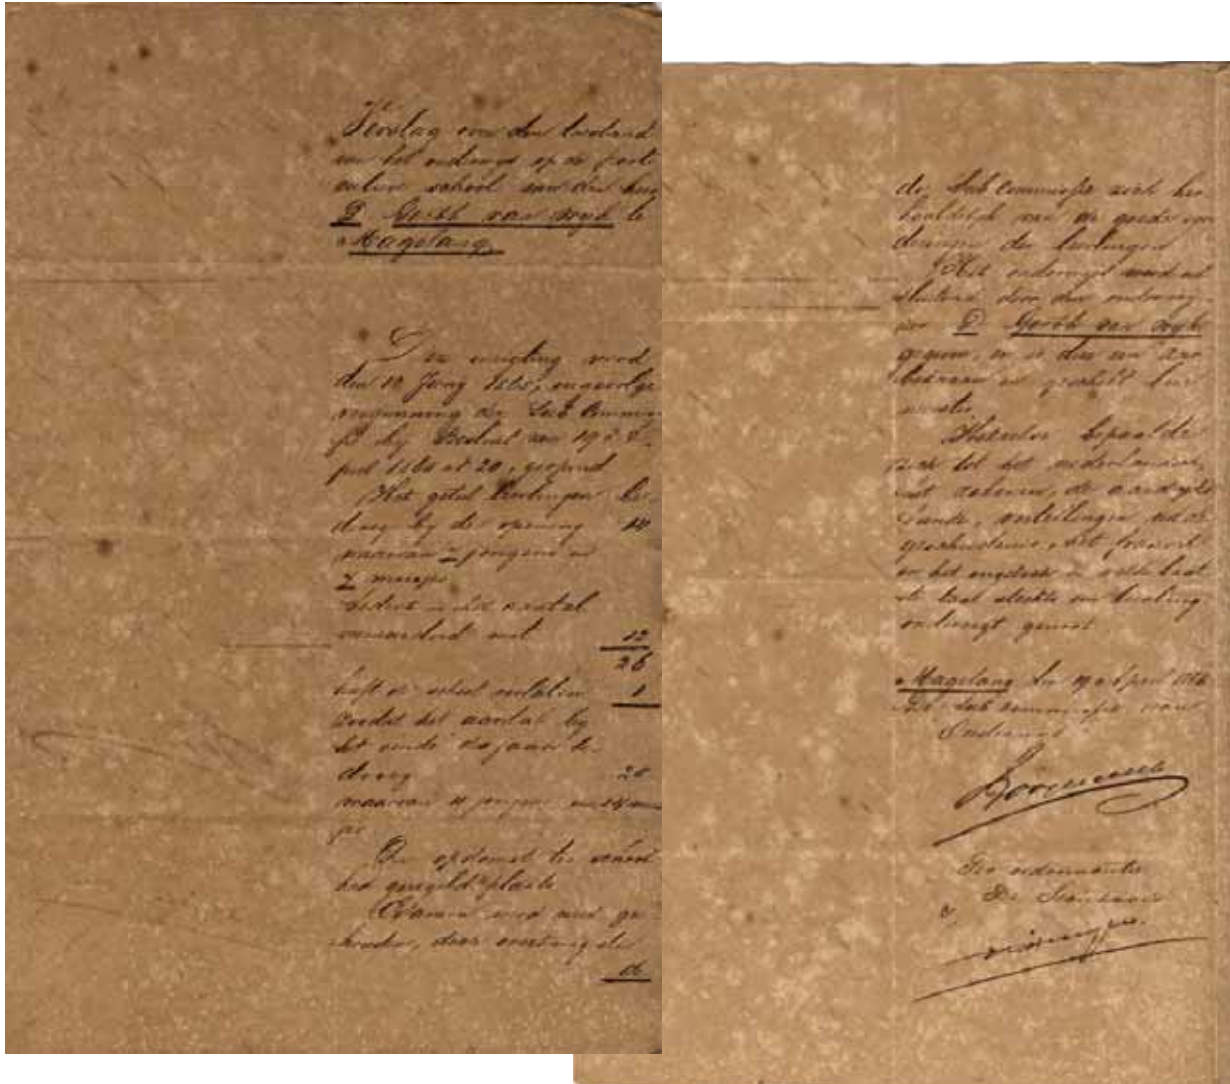 Verslag van den toestand
van het onderwijs op de parti
culiere school van den heer
D Gerth van Wijk te
Magelang.
Deze inrigting werd
den 10 Junij 1865, ingevolge
vergunning der Sub Commis
sie bij Besluit van 19 
1865 nº 20, geopend
Het getal leerlingen be-
droeg bij de opening 14
waarvan 7 jongens en
7 meisjes
sedert is dit aantal
vermeerderd met 12
26
heeft de school verlaten 1
zoodat het aantal bij
het einde des jaars be-
droeg 25
waarvan 11 jongens en 14 meis
jes.
De opkomst ter school
had geregeld plaats
Examen werd niet ge-
houden, doch overtuigde
de
de Sub Commissie zich her
haaldelijk van de goede vor
deringen der leerlingen
Het onderwijs werd uit
sluitend door den onderwij-
zer D Gerth van Wijk
gegeven, en is deze een zeer
bekwaam en geschikt leer
meester
Hetzelve bepaalde
zich tot het nederlandsch,
het rekenen, de aardrijks
kunde, vertellingen uit de
geschiedenis, het fransch
en het engelsch in welke laat
ste taal slechts een leerling
onderwijs genoot
Magelang den 19 April 1866
De Sub commissie van
Onderwijs
Ter ordonnantie
De Secretaris